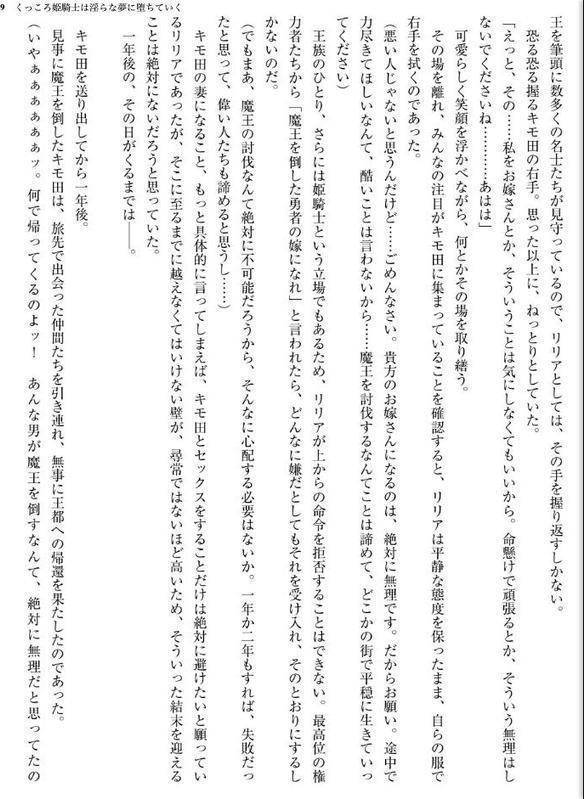 9 くっころ姫騎士は淫らな夢に堕ちていく
王を筆頭に数多くの名士たちが見守っているので、リリアとしては、その手を握り返すしかない。
恐る恐る握るキモ田の右手。思った以上に、ねっとりとしていた。
「えっと、その……私をお嫁さんとか、そういうことは気にしなくてもいいから。命懸けで頑張るとか、そういう無理はし
ないでくださいね…………あはは」
可愛らしく笑顔を浮かべながら、何とかその場を取り繕う。
その場を離れ、みんなの注目がキモ田に集まっていることを確認すると、リリアは平静な態度を保ったまま、自らの服で
右手を拭くのであった。
（悪い人じゃないと思うんだけど……ごめんなさい。貴方のお嫁さんになるのは、絶対に無理です。だからお願い。途中で
力尽きてほしいなんて、酷いことは言わないから……魔王を討伐するなんてことは諦めて、どこかの街で平穏に生きていっ
てください）
王族のひとり、さらには姫騎士という立場でもあるため、リリアが上からの命令を拒否することはできない。最高位の権
力者たちから「魔王を倒した勇者の嫁になれ」と言われたら、どんなに嫌だとしてもそれを受け入れ、そのとおりにするし
かないのだ。
（でもまあ、魔王の討伐なんて絶対に不可能だろうから、そんなに心配する必要はないか。一年か二年もすれば、失敗だっ
たと思って、偉い人たちも諦めると思うし……）
キモ田の妻になること、もっと具体的に言ってしまえば、キモ田とセックスをすることだけは絶対に避けたいと願ってい
るリリアであったが、そこに至るまでに越えなくてはいけない壁が、尋常ではないほど高いため、そういった結末を迎える
ことは絶対にないだろうと思っていた。
一年後の、その日がくるまでは――。
キモ田を送り出してから一年後。
見事に魔王を倒したキモ田は、旅先で出会った仲間たちを引き連れ、無事に王都への帰還を果たしたのであった。
（いやぁぁぁぁぁぁッ。何で帰ってくるのよッ！　あんな男が魔王を倒すなんて、絶対に無理だと思ってたの